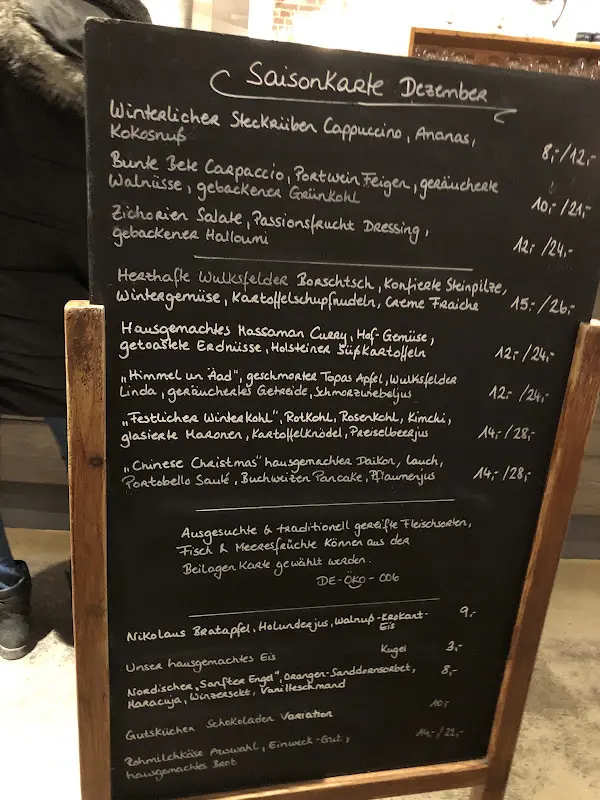 Saisonkarte Dezember
Winterlicher Steckrüben Cappuccino, Ananas,
Kokosnuß 8,-/12,-
Bunte Bete Carpaccio, Portwein Feigen, geräucherte
Walnüsse, gebackener Grünkohl 10,-/21,-
Zichorien Salate, Passionsfrucht Dressing,
gebackener Halloumi 12,-/24,-
Herzhafte Wulksfelder Borschtsch, Konfierte Steinpilze,
Wintergemüse, Kartoffelschupfnudeln, Creme Fraiche 15,-/26,-
Hausgemachtes Massaman Curry, Hof-Gemüse,
getoastete Erdnüsse, Holsteiner Süßkartoffeln 12,-/24,-
„Himmel un Äad", geschmorter Topas Apfel, Wulksfelder
Linda, geräuchertes Getreide, Schmorzwiebeljus 12,-/24,-
„Festlicher Winterkohl", Rotkohl, Rosenkohl, Kimchi,
glasierte Maronen, Kartoffelknödel, Preiselbeerjus 14,-/28,-
„Chinese Christmas" hausgemachter Daikon, Lauch,
Portobello Sauté, Buchweizen Pancake, Pflaumenjus 14,-/28,-
Ausgesuchte & traditionell gereifte Fleischsorten,
Fisch & Meeresfrüchte können aus der
Beilagen Karte gewählt werden.
DE-ÖKO-006
Nikolaus Bratapfel, Holunderjus, Walnuß-Krokant-
Eis 9,-
Unser hausgemachtes Eis Kugel 3,-
Nordischer „Sanfter Engel", Orangen-Sanddornsorbet, 8,-
Maracuja, Winzersekt, Vanilleschmand
Gutsküchen Schokoladen Variation 10,-
Rohmilchkäse Auswahl, Einweck-Gut, 14,-/22,-
hausgemachtes Brot